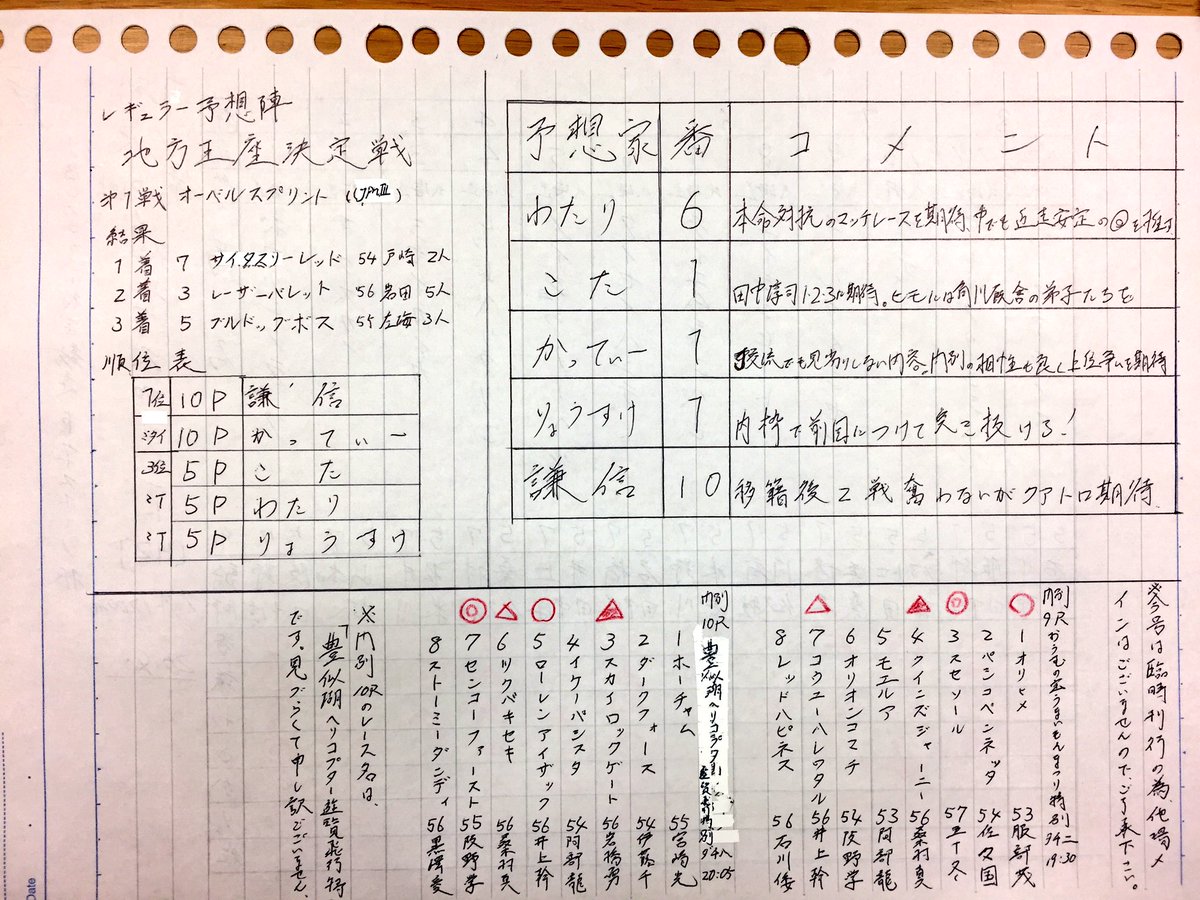 レギュラー予想陣
地方王座決定戦
第1戦 オーベルスプリント (JpnⅢ)
結果
1着 7 サイタスリーレッド 54 戸崎 2人
2着 3 レーザーバレット 56 岩田 5人
3着 5 ブルドッグボス 55 左海 3人
順位表
1位 10P 謙信
2タイ 10P かってぃー
3位 5P こた
3T 5P わたり
3T 5P りょうすけ
予想家 番 コメント
わたり 6 本命対抗のマッチレースを期待、中でも近走安定の◎を推す
こた 1 田中淳司1・2・3に期待。ヒモには角川厩舎の弟子たちを
かってぃー 7 交流でも見劣りしない内容。門別の相性も良く上位争いを期待
りょうすけ 7 内枠で前目につけて突き抜ける!
謙信 10 移籍後2戦奮わないがクアトロ期待
※今号は臨時刊行の為、他場メ
インはございませんので、ご了承下さい。
門別9R かうむの宝うまいもんまつり特別 ダ12 19:30
○ 1 オリヒメ 53 服部茂
2 ペンコペンネッタ 54 佐々国
◎ 3 スセソール 57 五十冬
▲ 4 クインズジャーニー 56 桑村真
5 モエルア 53 阿部龍
6 オリオンコマチ 54 阪野学
△ 7 コウユーハレワタル 56 井上幹
8 レッドハピネス 56 石川倭
門別10R 豊似湖ヘリコプター遊覧飛行特別 ダ18 20:05
1 ホーチャム 55 宮崎光
2 ダークフォース 54 伊藤千
▲ 3 スカイロックゲート 56 岩橋勇
4 イケーパシスタ 54 阿部龍
○ 5 ローレンアイザック 56 井上幹
△ 6 ツクバキセキ 56 桑村真
◎ 7 センコーファースト 55 阪野学
8 ストーミーダンディ 56 黒澤愛
※門別10Rのレース名は、
「豊似湖ヘリコプター遊覧飛行特
です。見づらくて申し訳ございません。